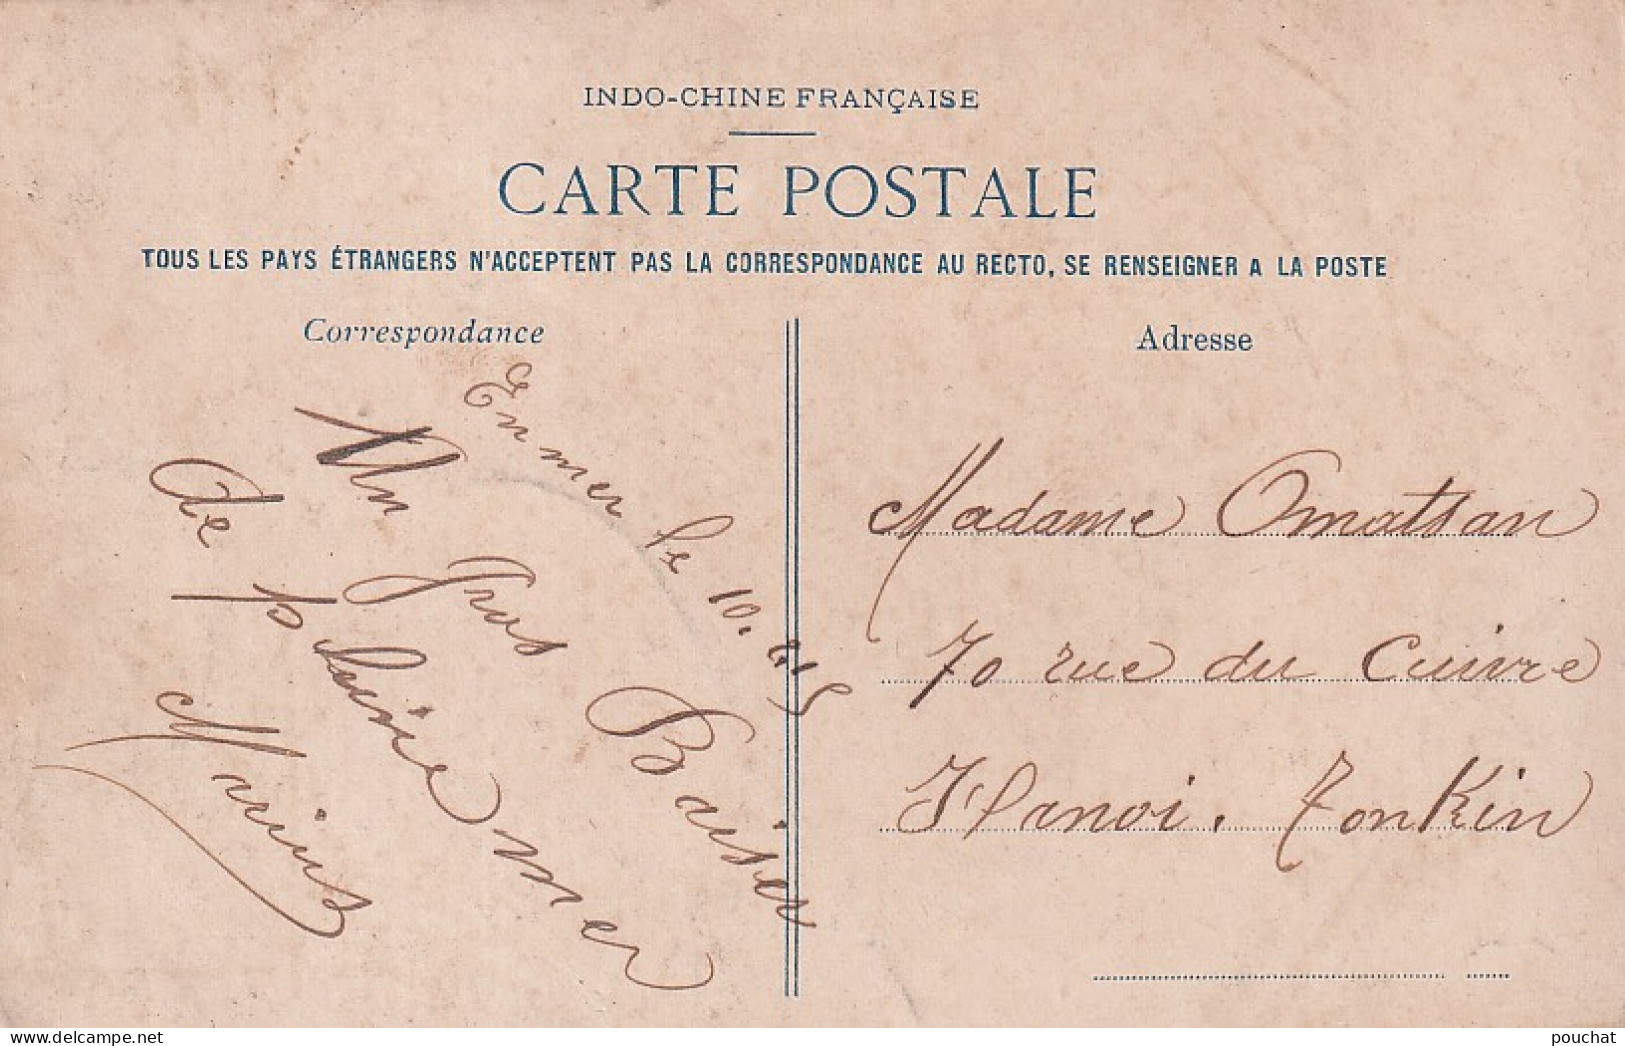 INDO-CHINE FRANÇAISE
CARTE POSTALE
TOUS LES PAYS ÉTRANGERS N'ACCEPTENT PAS LA CORRESPONDANCE AU RECTO, SE RENSEIGNER A LA POSTE
Correspondance
En mer le 10.
Un gros Baiser
de pleine mer
Marius
Adresse
Madame Omatsan
70 rue du Cuivre
Hanoi. Tonkin
www.delcampe.net
pouchat